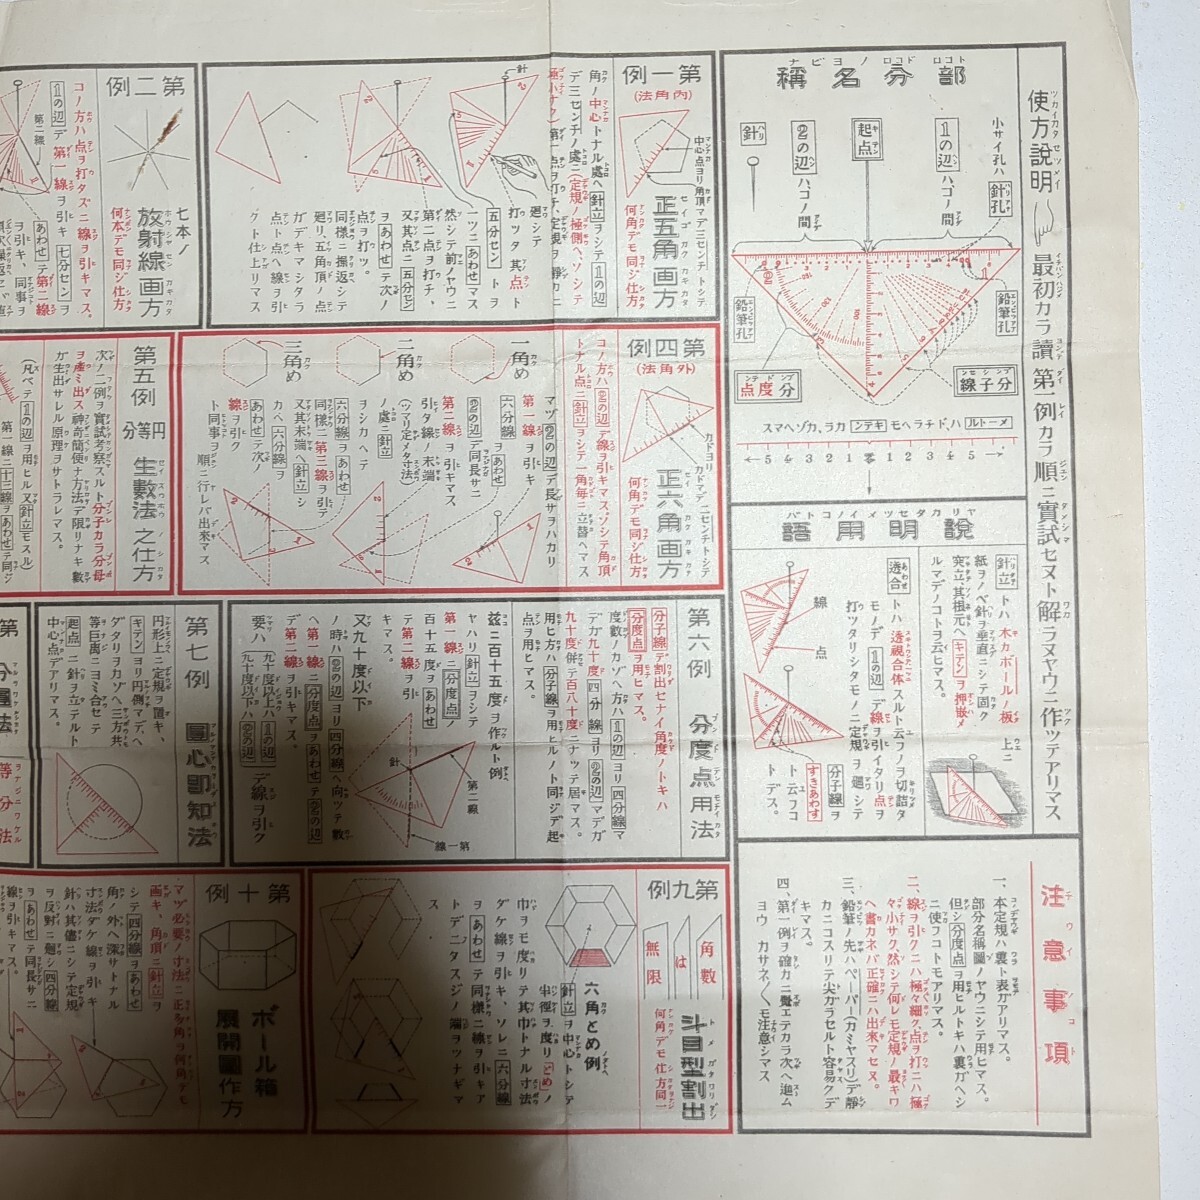 使方說明
最初カラ讀 第一例カラ順ニ實試セヌト解ラヌヤウニ作ツテアリマス
部分名稱
小サイ孔ハ針孔
1の辺ハコノ間
起点
2の辺ハコノ間
針
鉛筆孔
鉛筆孔
分子線
分度点
說明用語
針立トハ 木カボールノ板上ニ
紙ヲノベ針ヲ垂直ニシテ固ク
突立、其根元ヘキテンヲ押嵌メ
ルマデノコトヲ云ヒマス。
線
点
透合トハ 透視合体スルト云フノヲ切詰タ
モノデ 1の辺デ線ヲ引イタリ点ヲ
打ツタリシタモノニ定規ヲ廻シテ
分子線ヲ
すきあわす
ト云フコ
トデス。
注意事項
一、本定規ハ裏ト表ガアリマス。
部分名稱圖ノヤウニシテ用ヒマス。
但シ分度点ヲ用ヒルトキハ裏ガヘシ
ニ使フコトモアリマス。
二、線ヲ引クニハ極々細ク点ヲ打ニハ極
々小サク、然シテ何レモ定規ノ最キワ
ヘ書カネバ正確ニハ出來マセヌ。
三、鉛筆ノ先ハペーパー(カミヤスリ)デ靜
カニコスリテ尖ガラセルト容易クデ
キマス。
四、第一例ヲ確カニ覺エテカラ次ヘ進ム
ヨウ カサネ〲モ注意シマス
第一例
(內角法)
中心点ヨリ角頂マデ三センチトシテ
正五角画方
何角デモ同ジ仕方
角ノ中心トナル處ヘ針立ヲシテ1の辺
デ三センチノ處ニ(定規ノ極側ヘ、ソシテ
極小サク)第一点ヲ打チ、定規ヲ靜カニ
廻シテ
打ツタ其点ト
五分センドヲ
一ツニあわせマス
然シテ前ノヤウニ
第二点ヲ打チ、
又其点ニ五分セン
ヲあわせテ次ノ
点ヲ打ツ。
同樣ニ操返シテ
廻リ、五角頂ノ点
ガデキマシタラ
点ト点ヘ線ヲ引
クト仕上リマス
針
第二例
七本ノ
放射線画方
何本デモ同ジ仕方
コノ方ハ点ヲ打タズニ線ヲ引キマス。
1の辺デ第一線ヲ引キ七分センヲ
あわせテ第二線
ヲ引キ、同事ヲ
第二線
第四例
(外角法)
カドヨリカドマデニセンチトシテ
正六角画方
何角デモ同ジ仕方
コノ方ハ2の辺デ線ヲ引キマス、ソシテ角頂
トナル点ニ針立ヲシテ一角每ニ立替ヘマス
マヅ2の辺デ長サヲハカリ
第一線ヲ引キ
六分線ヲあわせ
2の辺デ同長サニ
第二線ヲ引キマス
引タ線ノ末端
(ツマリ定メタ寸法)
ノ處ニ針立
ヲシカヘテ
六分線ヲあわせ
同樣ニ第三線ヲ引テ
又其末端ヘ針立シ
カヘ六分線ヲ
あわせテ次ノ
線ヲ引ク
ト同事ヲ
順ニ行レバ出來マス
一角め
二角め
三角め
第五例
円等分
生數法之仕方
次ノ二例ヲ實試考察スルト分子カラ分母
ヲ產ミ出ス神奇簡便ナ方法デ限リナキ數
ガ生出サレル原理ヲサトラレマス。
(凡ベテ1の辺ヲ用ヒル又針立モスル)
第一線ニ十三線ヲあわせテ同ジ
第六例
分度点用法
分子線デ割出セナイ角度ノトキハ
分度点ヲ用ヒマス。
度數ノカゾヘ方ハ1の辺ヨリ四分線マ
デガ九十度四分線ヨリ2の辺マデガ
九十度併テ百八十度ニナッテ居マス。
用ヒ方ハ分子線ヲ用ヒルト同ジデ起
点ヲ用ヒマス。
茲ニ百十五度ヲ作ルト例
ヤハリ針立ヲシテ
第一線ニ分度点ノ
百十五度ヲあわせ
テ第二線ヲ引
キマス。
又九十度以下
ノ時ハ2の辺ヨリ四分線ヘ向ッテ數
ヘ第一線ニ分度点ヲあわせテ2の辺
デ第二線ヲ引キマス。
要ハ
九十度以上ハ1の辺
九十度以下ハ2の辺
デ線ヲ引ク
針
第二線
第一線
第七例
圓心卽知法
円形上ニ定規ヲ置キ、
キテンヨリ円側マデ、ヘ
ダタリヲカゾヘ三方共
等巨离ニヨミ合セテ
起点ニ針ヲ立テルト
中心点デアリマス。
第九例
角數は無限
斗目型割出
何角デモ仕方同一
六角とめ例
針立ヲ中心トシテ
半徑ヲ度リとめノ
巾ヲモ度リテ其巾トナル寸法
ダケ線ヲ引キ、ソレニ六分線
ヲあわせテ同樣ニ線ヲ引キア
トデニタスジノ端ヲツナギマ
ス
第十例
ボール箱
展開圖作方
マヅ必要ノ寸法ニ正多角ヲ何角デモ
画キ、角頂ニ針立ヲ
シテ四分線ヲあわせ
角ノ外ヘ深サトナル
寸法ダケ線ヲ引キ
針ハ其儘ニシテ定規
ヲ反對ニ廻シ四分線
ヲあわせテ同長サニ
線ヲ引キマス。